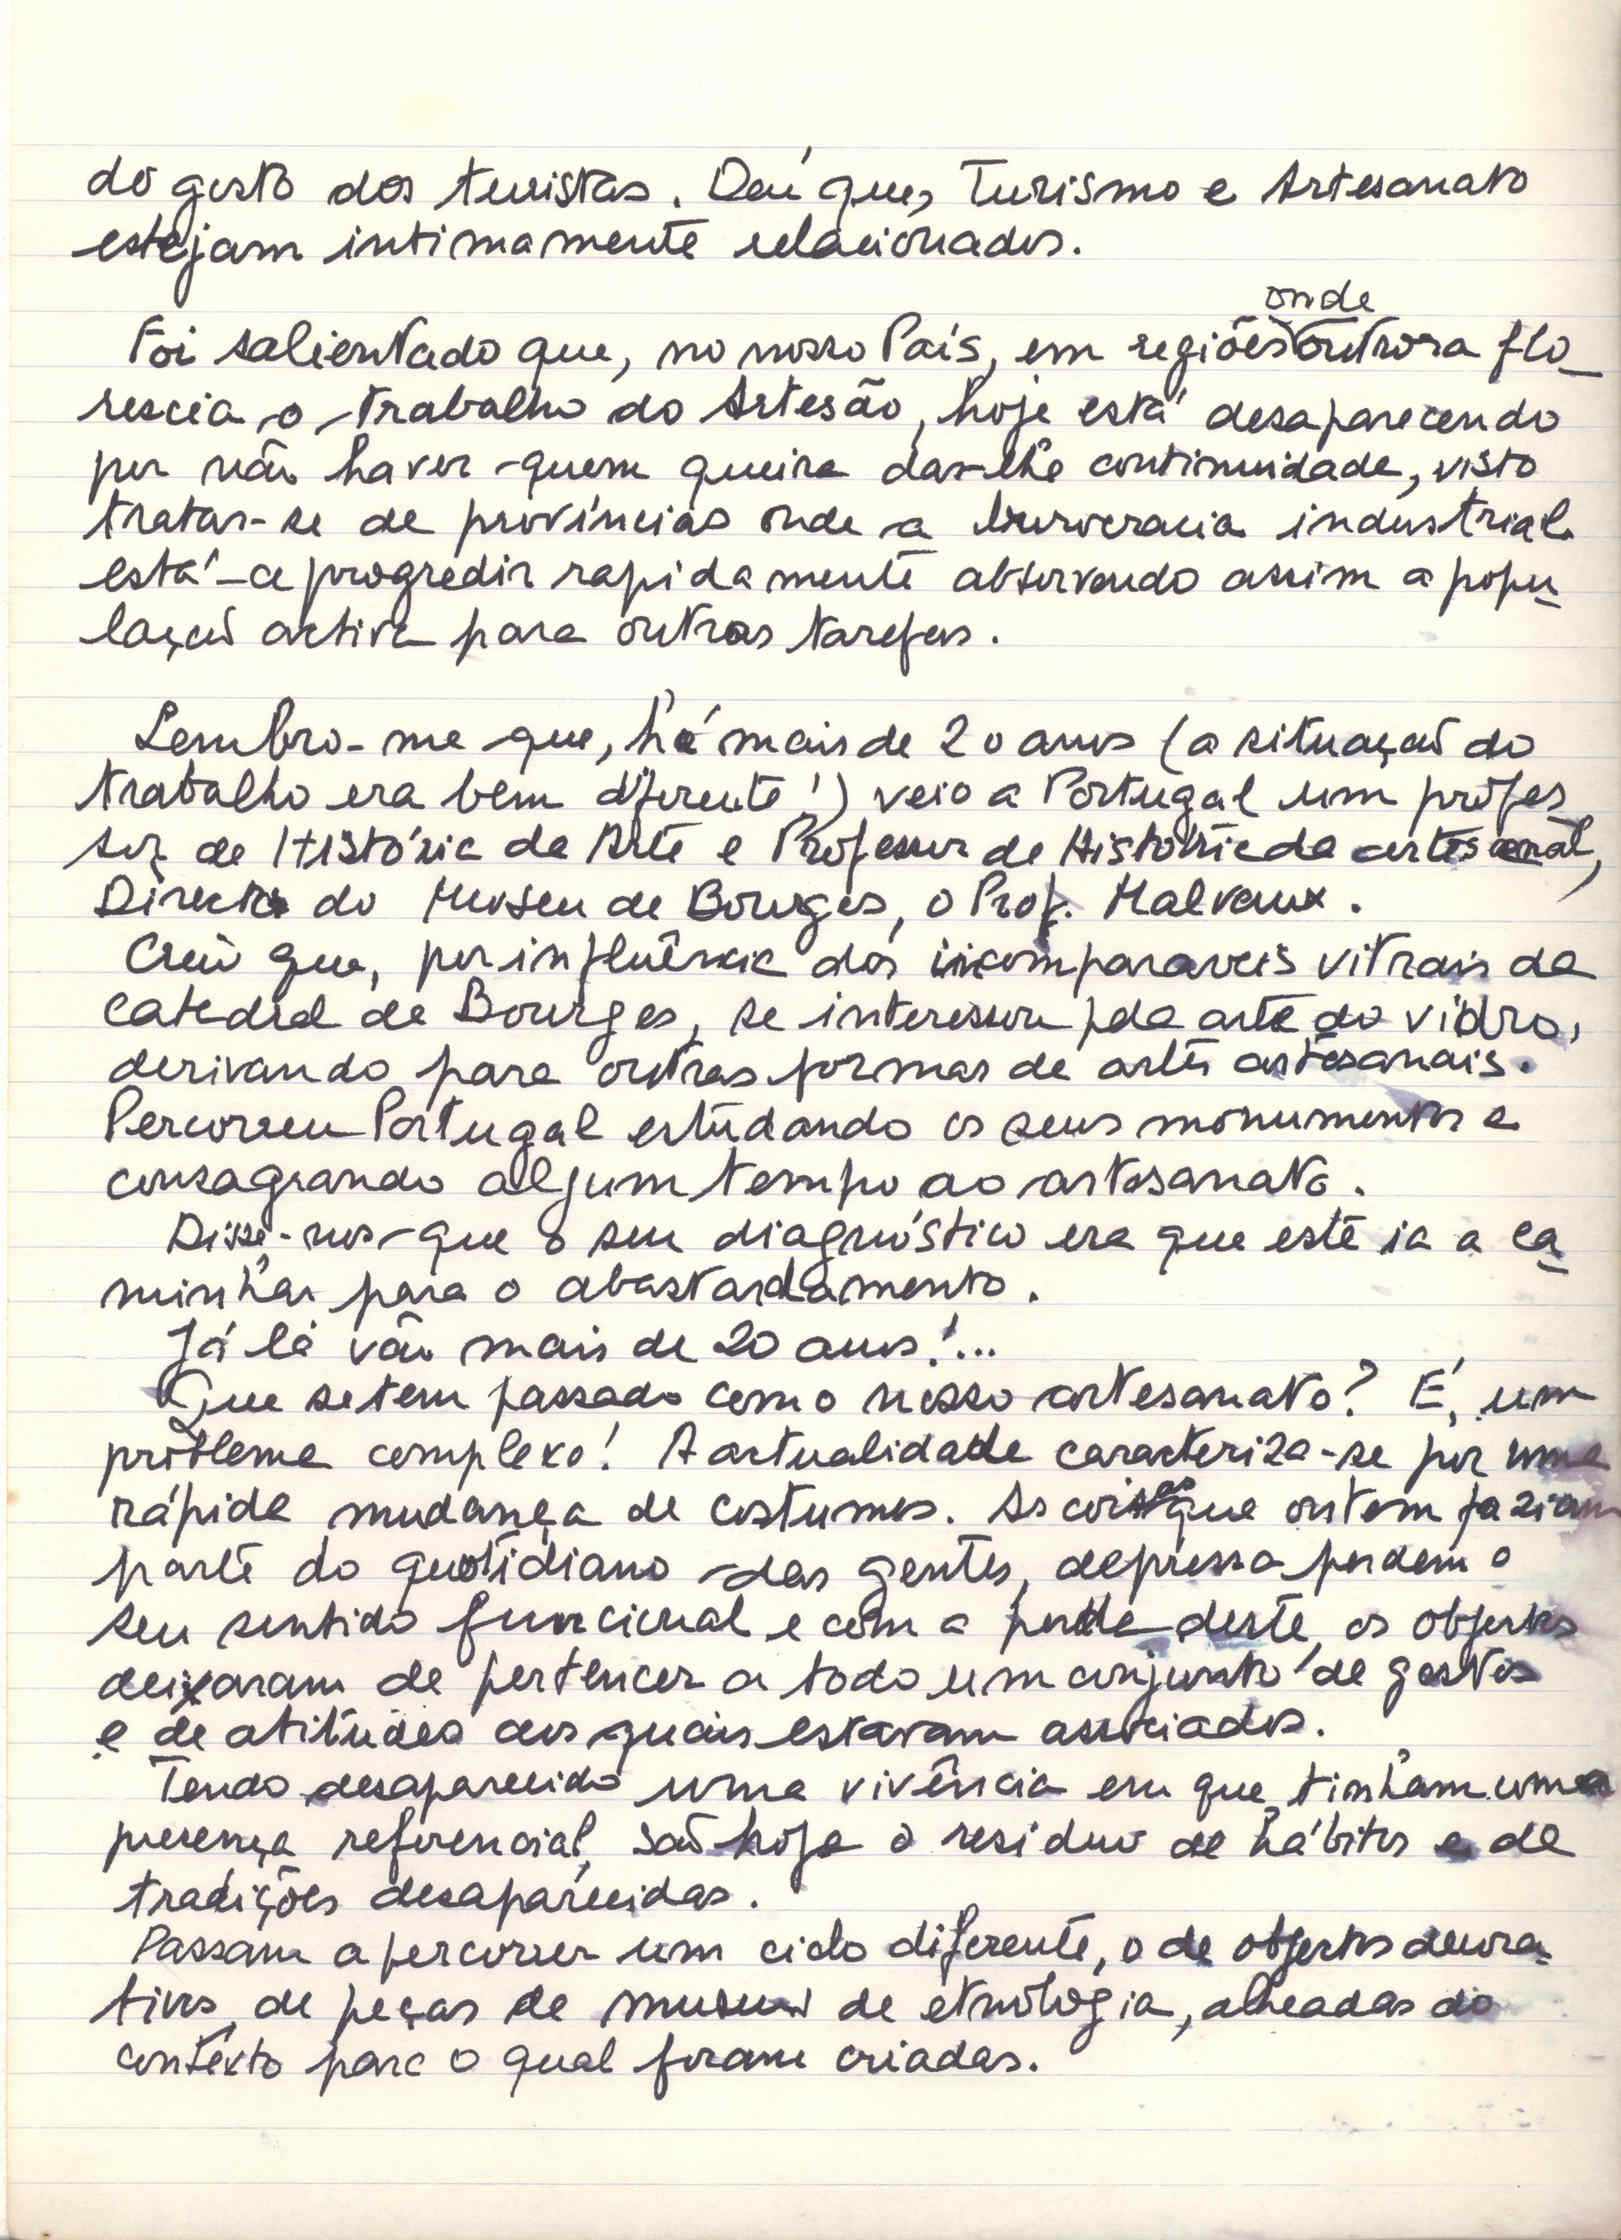 do gosto dos turistas. Daí que, Turismo e Artesanato
estejam intimamente relacionados.
Foi salientado que, no nosso País, em regiões onde outrora flo-
rescia o trabalho do Artesão, hoje está desaparecendo
por não haver quem queira dar-lhe continuidade, visto
tratar-se de províncias onde a burocracia industrial
está a progredir rapidamente absorvendo assim a popu-
lação activa para outras tarefas.
Lembro-me que, há mais de 20 anos (a situação do
trabalho era bem diferente!) veio a Portugal um profes-
sor de História da Arte e Professor de História da artesanal,
Director do Museu de Bourges, o Prof. Malvaux.
Creio que, por influência dos incomparaveis vitrais da
Catedral de Bourges, se interessou pela arte do vidro,
derivando para outras formas de artes artesanais.
Percorreu Portugal estudando os seus monumentos e
consagrando algum tempo ao artesanato.
Disse-nos que o seu diagnóstico era que este ia a ca-
minhar para o abastardamento.
Já lá vão mais de 20 anos!...
Que se tem passado com o nosso artesanato? É, um
problema complexo! A actualidade caracteriza-se por uma
rápida mudança de costumes. As coisas que ontem faziam
parte do quotidiano das gentes, depressa perdem o
seu sentido funcional e com a perda deste, os objectos
deixaram de pertencer a todo um conjunto de gestos
e de atitudes aos quais estavam associados.
Tendo desaparecido uma vivência em que tinham uma
presença referencial, são hoje o residuo de hábitos e de
tradições desaparecidas.
Passam a percorrer um ciclo diferente, o de objectos decora-
tivos, de peças de museus de etnologia, alheadas do
contexto para o qual foram criadas.